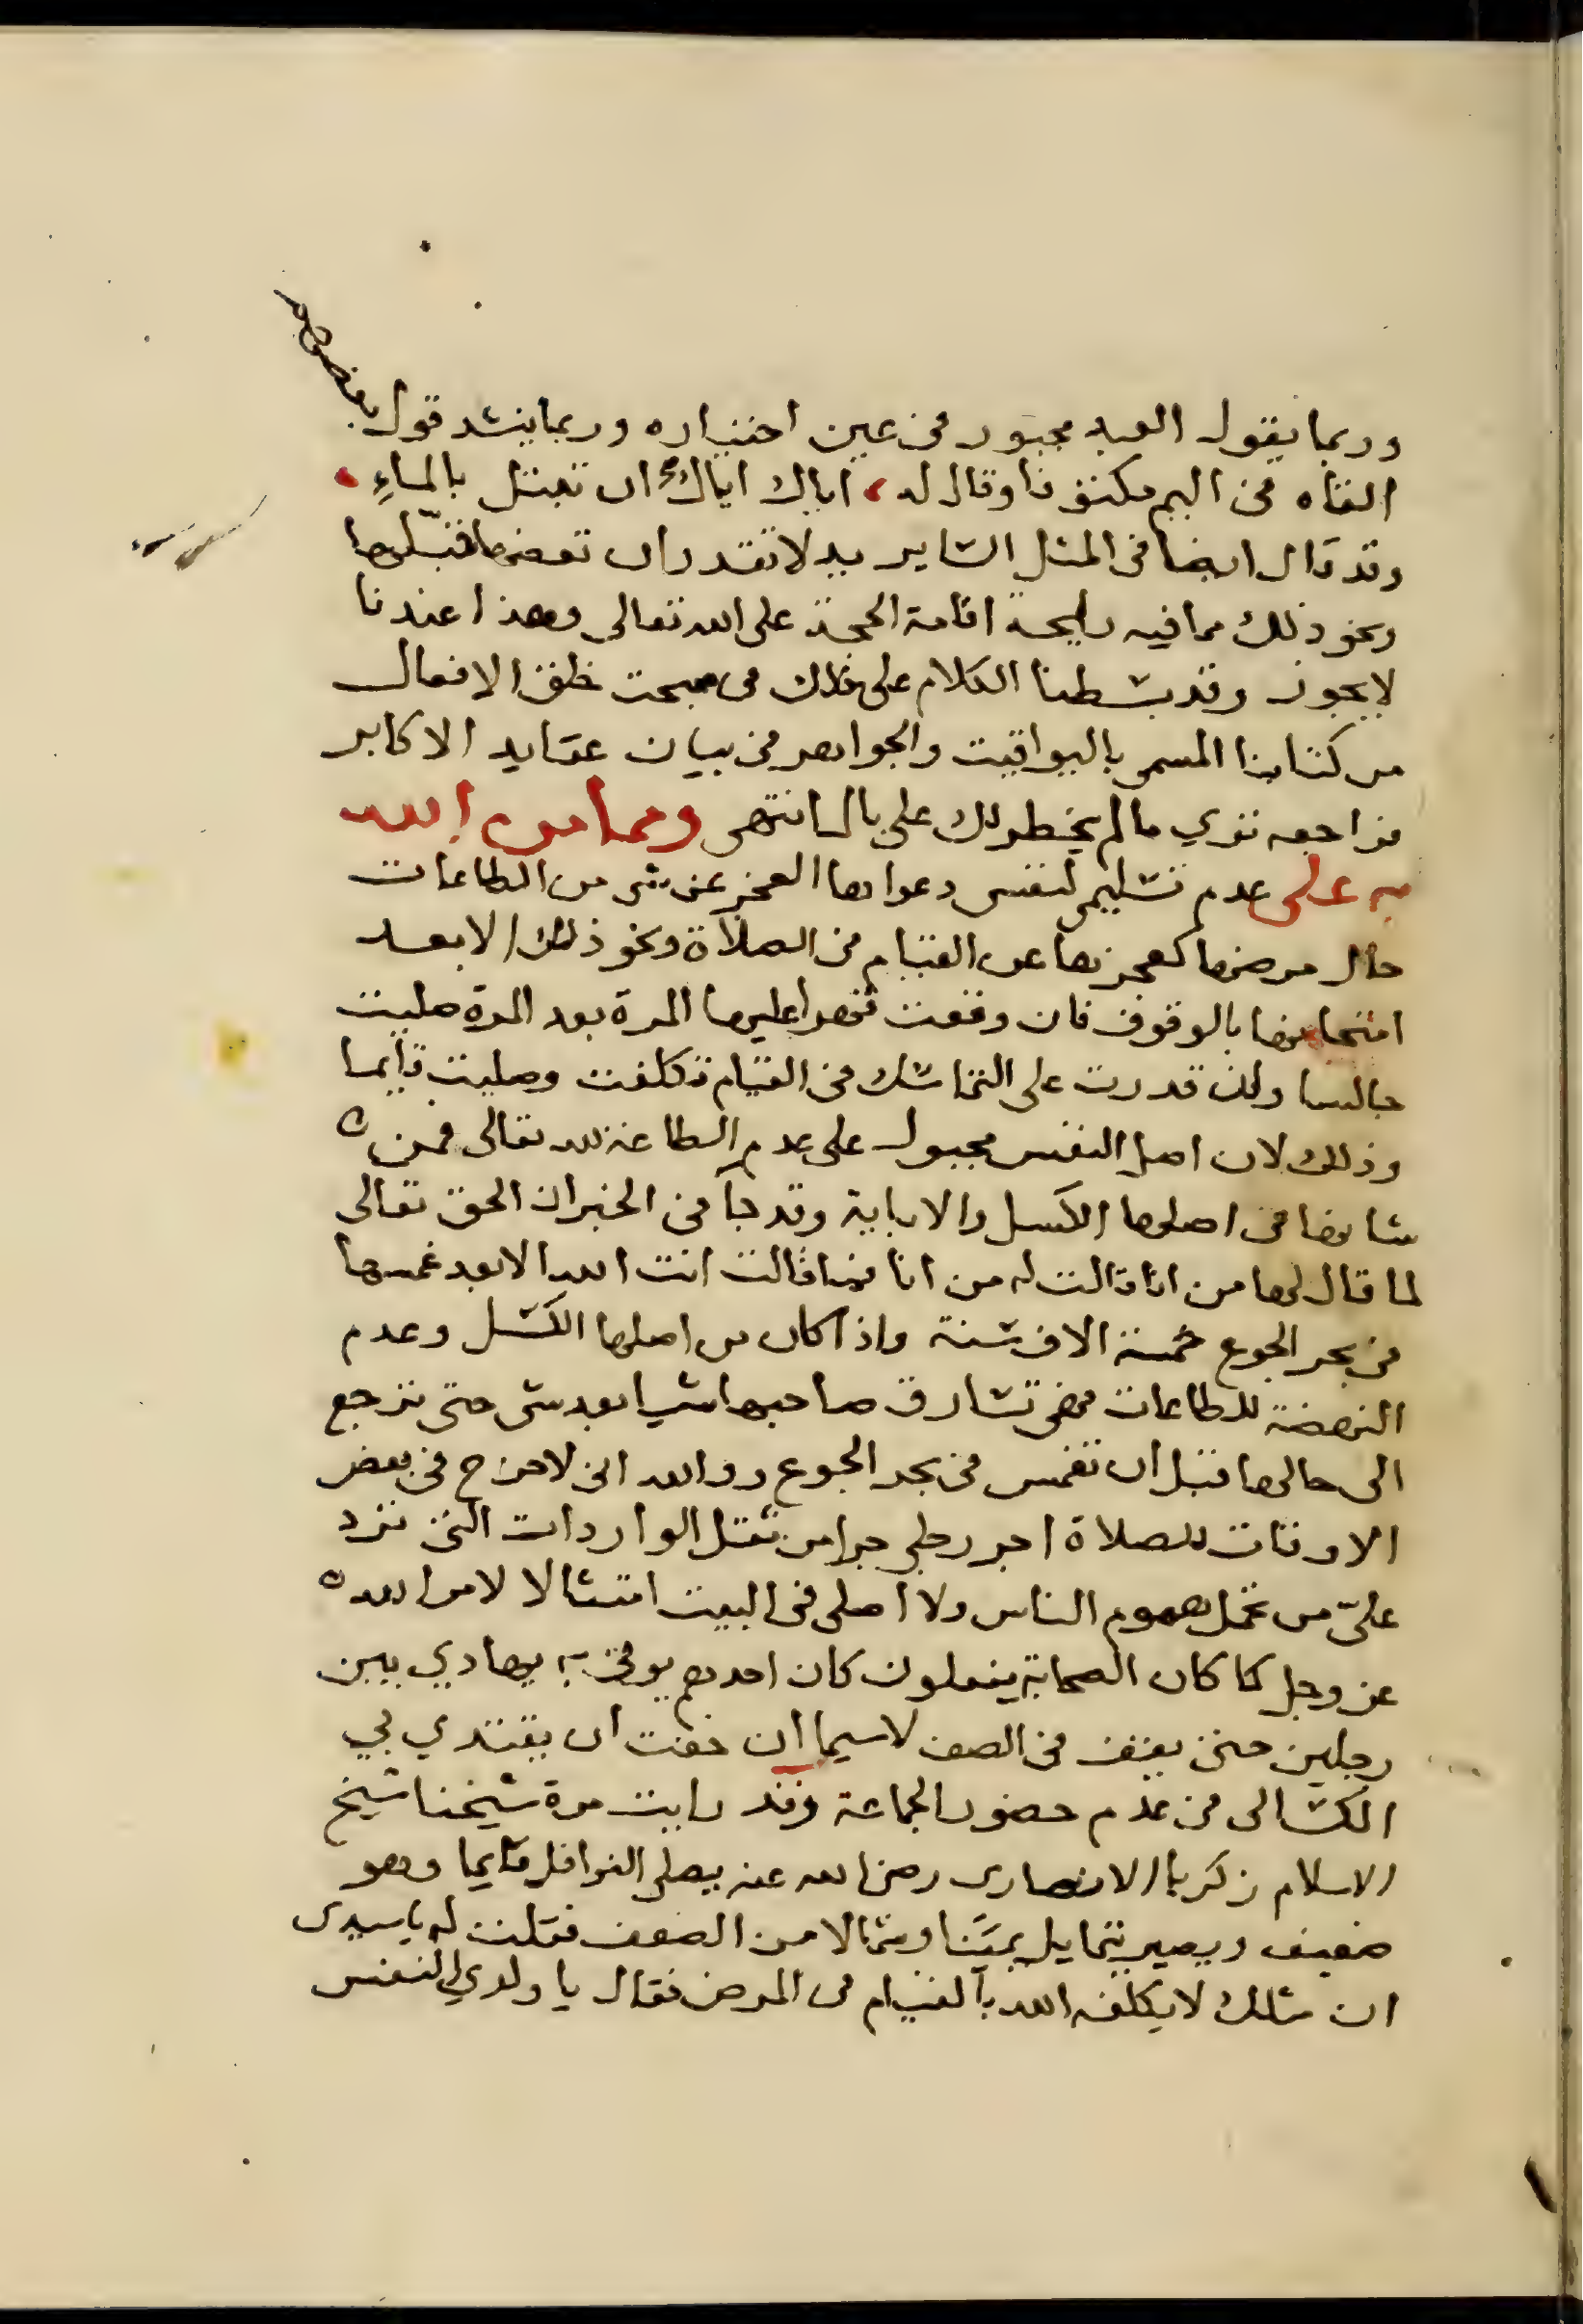 وربما يقول العبد مجبور في عين اختياره وربما ينشد قول بعضهم
القاه في اليم مكتوفا وقال له، اياك اياك ان تبتل بالماءِ
وقد قال ايضا في المثل الساير يد لا تقدر ان تعضها فقبّلها
ونحو ذلك مما فيه رايحة اقامة الحجة على الله تعالى وهذا عندنا
لا يجوز وقد بسطنا الكلام على ذلك في مبحث خلق الافعال
من كتابنا المسمى باليواقيت والجواهر في بيان عقايد الاكابر
فراجعه تري ما لم يخطر لك على بال انتهى ومما من الله
به على عدم تسليمي لنفسي دعواها العجز عن شي من الطاعات
حال مرضها كعجزها عن القيام في الصلاة ونحو ذلك الا بعد
امتحانها بالوقوف فان وقعت قهرا عليها المرة بعد المرة صليت
جالسا وان قدرت على التماسك في القيام تكلفت وصليت قايما
وذلك لان اصل النفس مجبول على عدم الطاعة لله تعالى فمن
شانها في اصلها الكسل والاباية وقد جا في الخبر ان الحق تعالى
لما قال لها من انا قالت له من انا فما قالت انت الله الا بعد غمسها
في بحر الجوع خمسة الاف سنة واذا كان من اصلها الكسل وعدم
النهضة للطاعات فهي تسارق صاحبها شيا بعد شي حتى ترجع
الى حالها قبل ان تغمس في بحر الجوع ووالله اني لاخرج في بعض
الاوقات للصلاة اجر رجلي جرا من ثقل الواردات التي ترد
عليّ من تحمل هموم الناس ولا اصلى في البيت امتثالا لامر الله
عز وجل كما كان الصحابة يفعلون كان احدهم يوتى به يهادي بين
رجلين حتى يقف في الصف لاسيما ان خفت ان يقتدي بي
الكسالى في عدم حضور الجماعة وقد رايت مرة شيخنا شيخ
الاسلام زكريا الانصارى رضى الله عنه يصلي النوافل قايما وهو
ضعيف ويصير يتمايل يمينا وشمالا من الضعف فقلت له يا سيدى
ان مثلك لا يكلفه الله بالقيام في المرض فقال يا ولدي النفس